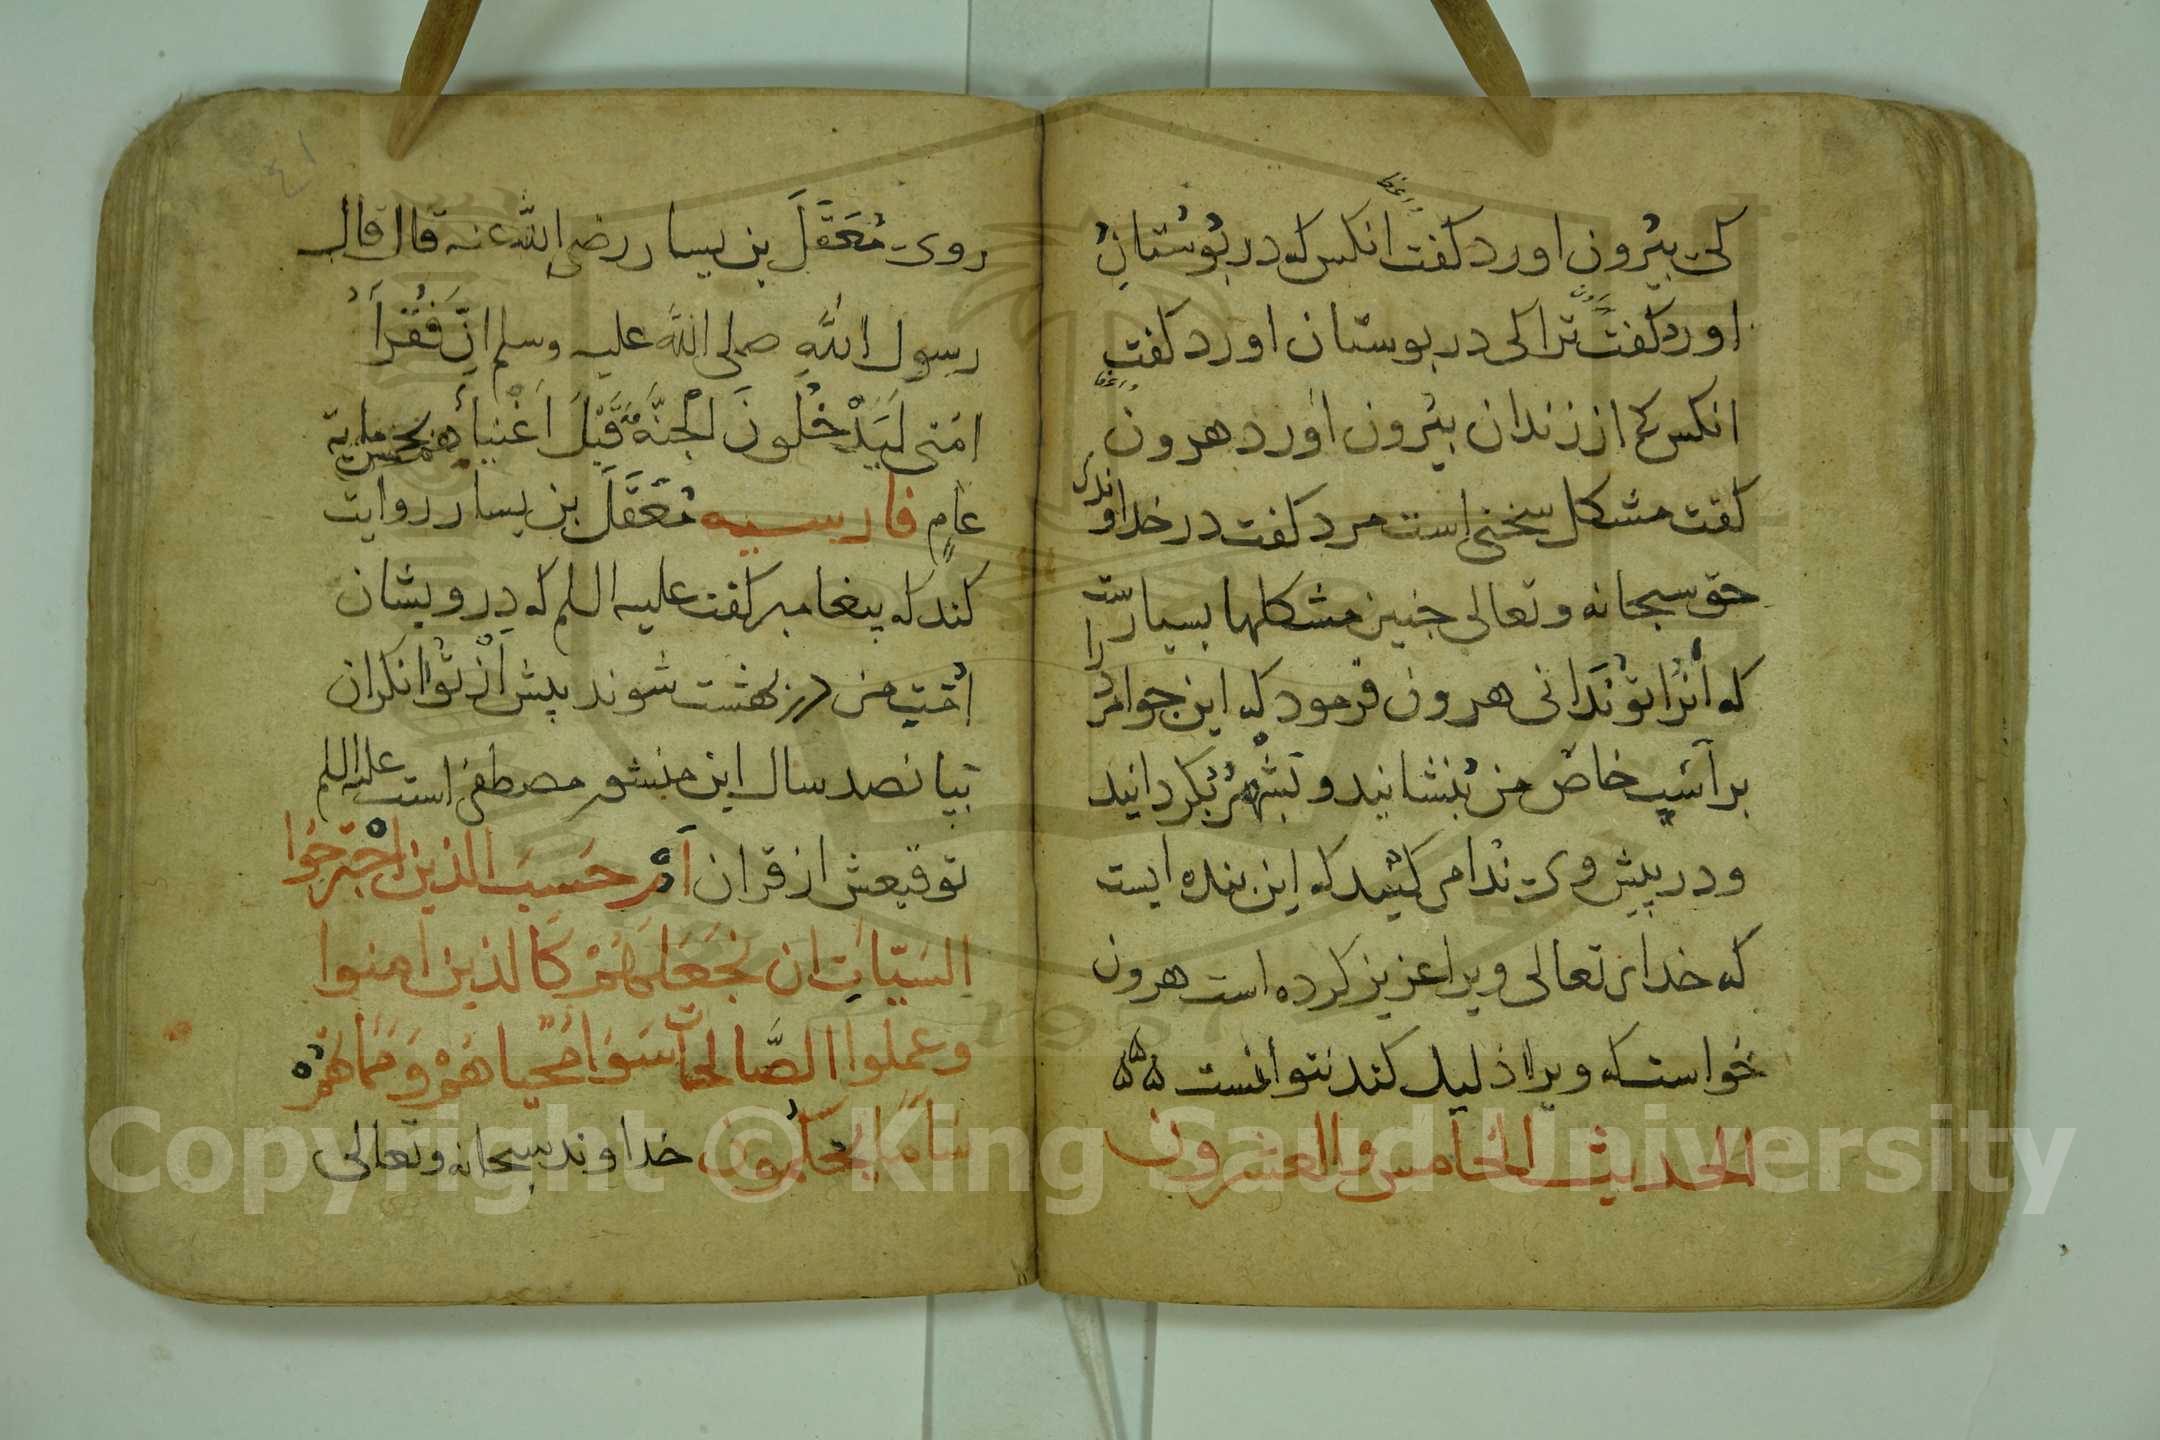 کی بیرون اورد کفت انکس که در بوستان
اورد کفت ترا کی در بوستان اورد کفت
انکس کم از زندان بیرون اورد هرون
کفت مشکل سخنی است مرد کفت در خداوندی
حق سبحانه وتعالی جنین مشکلها بسیارست
که انرا تو ندانی هرون فرمود که این جوامرد را
بر اسب خاص من بنشانید و بشهر بکردانید
و در پیش وی ندا می کنید که این بنده ایست
که خدای تعالی ویرا عزیز کرده است هرون
خواست که ویرا ذلیل کند نتوانست ۵۵۵
الحدیث الخامس والعشرون
٤١
روی مُعَقَلَ بن یسار رضی الله عنه قال قال
رسول اللهِ صلی اللهُ علیه وسلم اِنَّ فُقَرَاَ
امتی لَیَدْخُلونَ الجنَّةَ قَبْلَ اَغْنِیائِهم بخمس مایة
عامٍ فارسیه مُعَقَلَ بن یسار روایت
کند که پیغامبر کفت علیه السلم که درویشان
امت من در بهشت شوند پیش از توانکران
بپانصد سال این منشور مصطفی است علیه السلم
توقیعش از قران اَمْ حَسِبَ الذین اجْتَرَحُوا
السَیّاتِ ان نَجْعَلَهُمْ کَالذین امنوا
وعملوا الصَّالحات سَوَا مَحْیاهُمْ وَمَمَاتُهُمْ
سَآمَا یَحْکُمُون خداوند سبحانه وتعالی
Copyright © King Saud University
1957